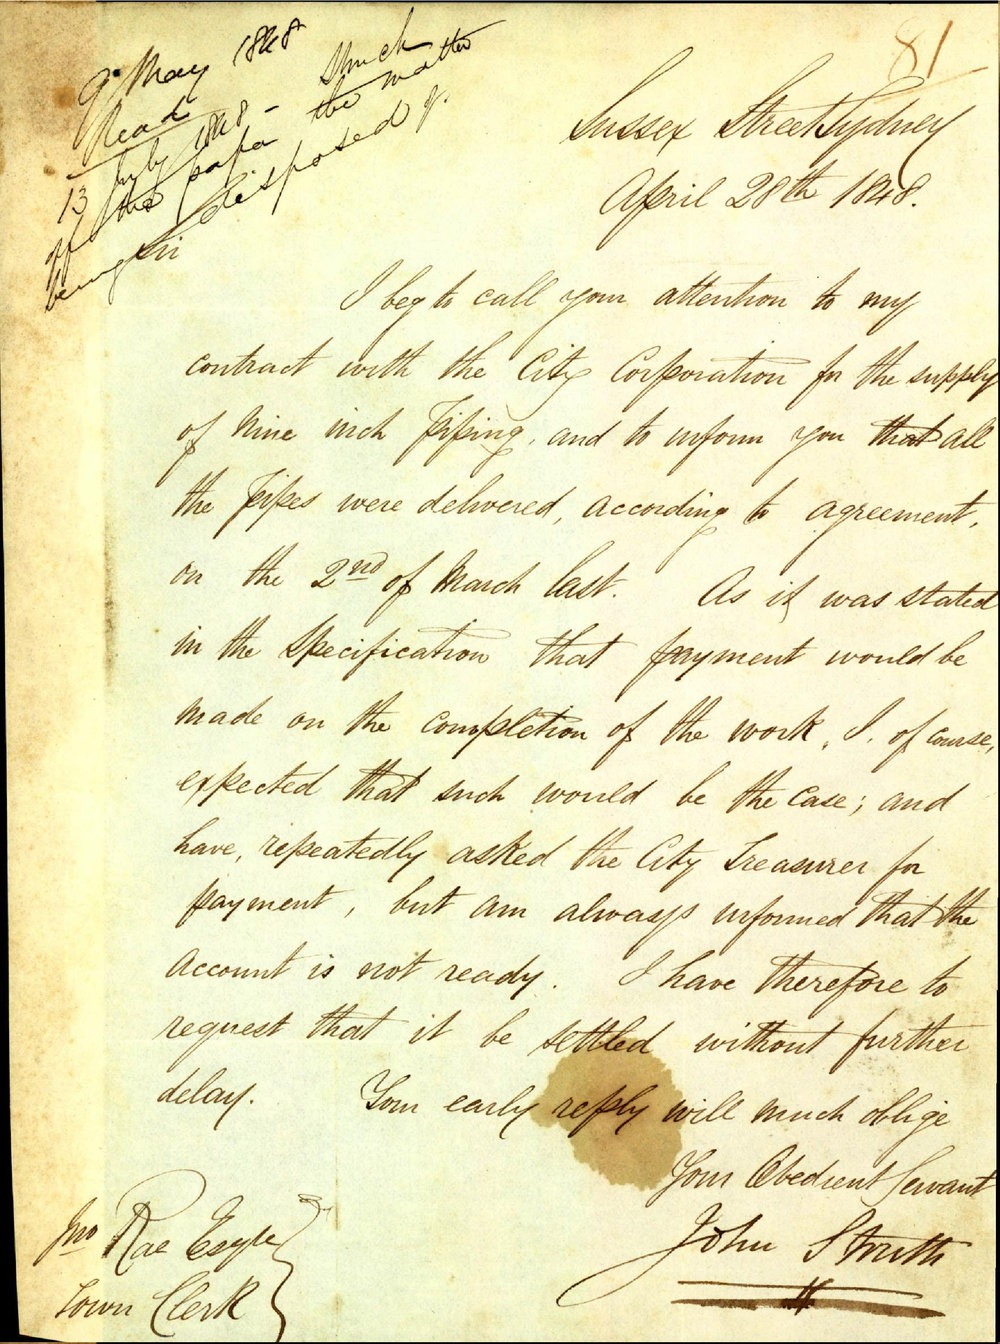 9 May 1848
Read
13 July 1848 - Struck
off the paper the matter
being disposed of.
81
Sussex Street Sydney
April 28th 1848.
Sir
I beg to call your attention to my
contract with the City Corporation for the supply
of Nine inch Piping, and to inform you that all
the Pipes were delivered, according to agreement,
on the 2nd of March last. As it was stated
in the Specification that payment would be
made on the completion of the work, I, of course,
expected that such would be the case; and
have, repeatedly asked the City Treasurer for
payment, but am always informed that the
account is not ready. I have therefore to
request that it be settled without further
delay. Your early reply will much oblige
Your Obedient Servant
John Struth
Jno Rae Esqre
Town Clerk